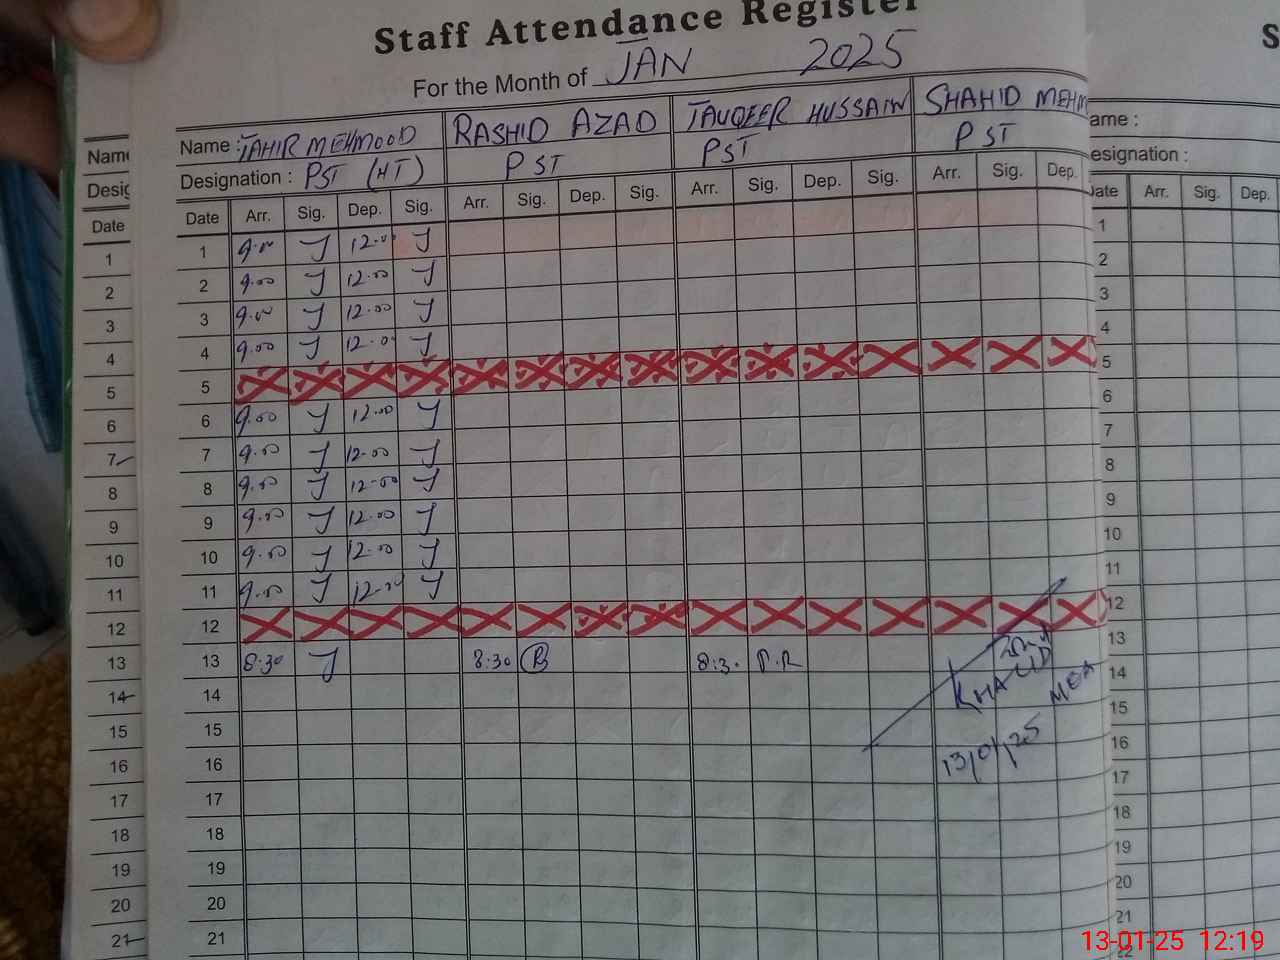 Staff Attendance Register
For the Month of JAN 2025
Name : TAHIR MEHMOOD RASHID AZAD TAUQEER HUSSAIN SHAHID MEHM
Designation : PST (HT) PST PST PST
Date Arr. Sig. Dep. Sig. Arr. Sig. Dep. Sig. Arr. Sig. Dep. Sig. Arr. Sig. Dep.
1 9.00 J 12.00 J
2 9.00 J 12.00 J
3 9.00 J 12.00 J
4 9.00 J 12.00 J
5
6 9.00 J 12.00 J
7 9.00 J 12.00 J
8 9.00 J 12.00 J
9 9.00 J 12.00 J
10 9.00 J 12.00 J
11 9.00 J 12.00 J
12
13 8:30 J 8:30 B 8:3. P.R
KHALID
MEA
14
15
13/01/25
16
17
18
19
20
21
Name
Desig
Date
1
2
3
4
5
6
7
8
9
10
11
12
13
14
15
16
17
18
19
20
21
S
ame :
esignation :
Date Arr. Sig. Dep.
1
2
3
4
5
6
7
8
9
10
11
12
13
14
15
16
17
18
19
20
21
22
13-01-25 12:19